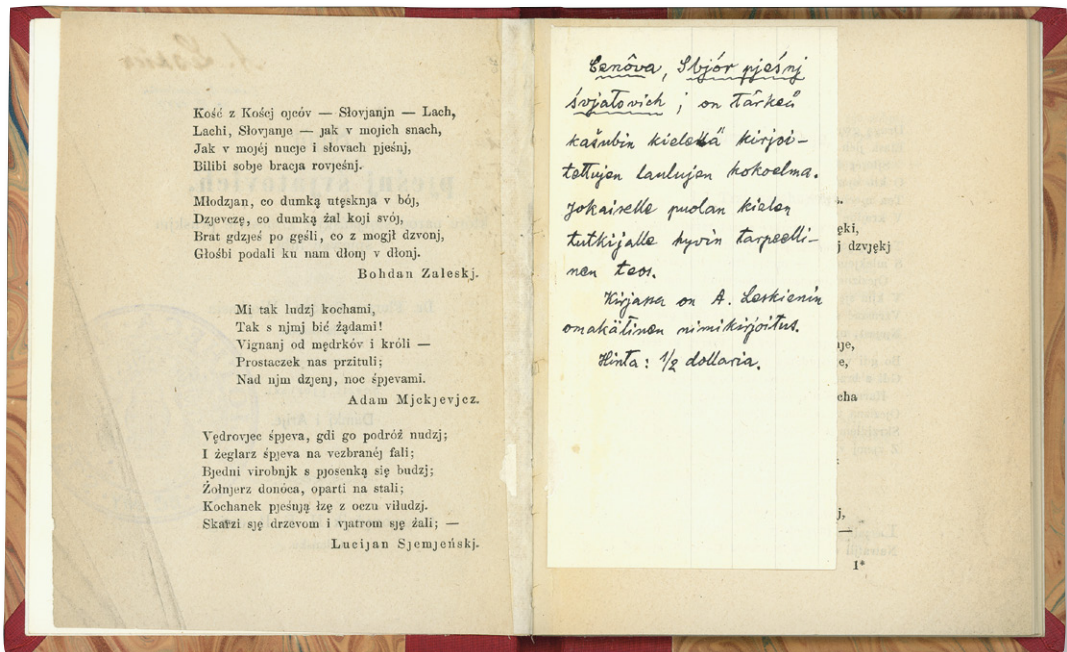 Kość z Kośćj ojcóv — Słovjanjn — Lach,
Lachi, Słovjanje — jak v mojich snach,
Jak v mojéj nucje i słovach pjeśnj,
Bilibi sobje bracja rovjeśnj.
Młodzjan, co dumką utęsknja v bój,
Dzjevczę, co dumką żal koji svój,
Brat gdzjeś po gęśli, co z mogjł dzvonj,
Głośbi podali ku nam dłonj v dłonj.
Bohdan Zaleskj.
Mi tak ludzj kochami,
Tak s njmj bić żądami!
Vignanj od mędrkóv i króli —
Prostaczek nas przituli;
Nad njm dzjenj, noc śpjevami.
Adam Mjckjevjcz.
Vędrovjec śpjeva, gdi go podróż nudzj;
I żeglarz śpjeva na vezbranéj fali;
Bjedni virobnjk s pjosenką się budzj;
Żołnjerz donóca, oparti na stali;
Kochanek pjeśnją łzę z oczu viłudzj.
Skarzi sję drzevom i vjatrom sję żali; —
Lucijan Sjemjeńskj.
Cenôva, Sbjór pjeśnj
śvjatovich; on tärkeä
kašubin kielellä kirjoi-
tettujen laulujen kokoelma.
Jokaiselle puolan kielen
tutkijalle hyvin tarpeelli-
nen teos.
Kirjassa on A. Leskienin
omakätinen nimikirjoitus.
Hinta: 1/2 dollaria.
ęki,
j dzvjękj
je,
e,
cha
j,
—
1*